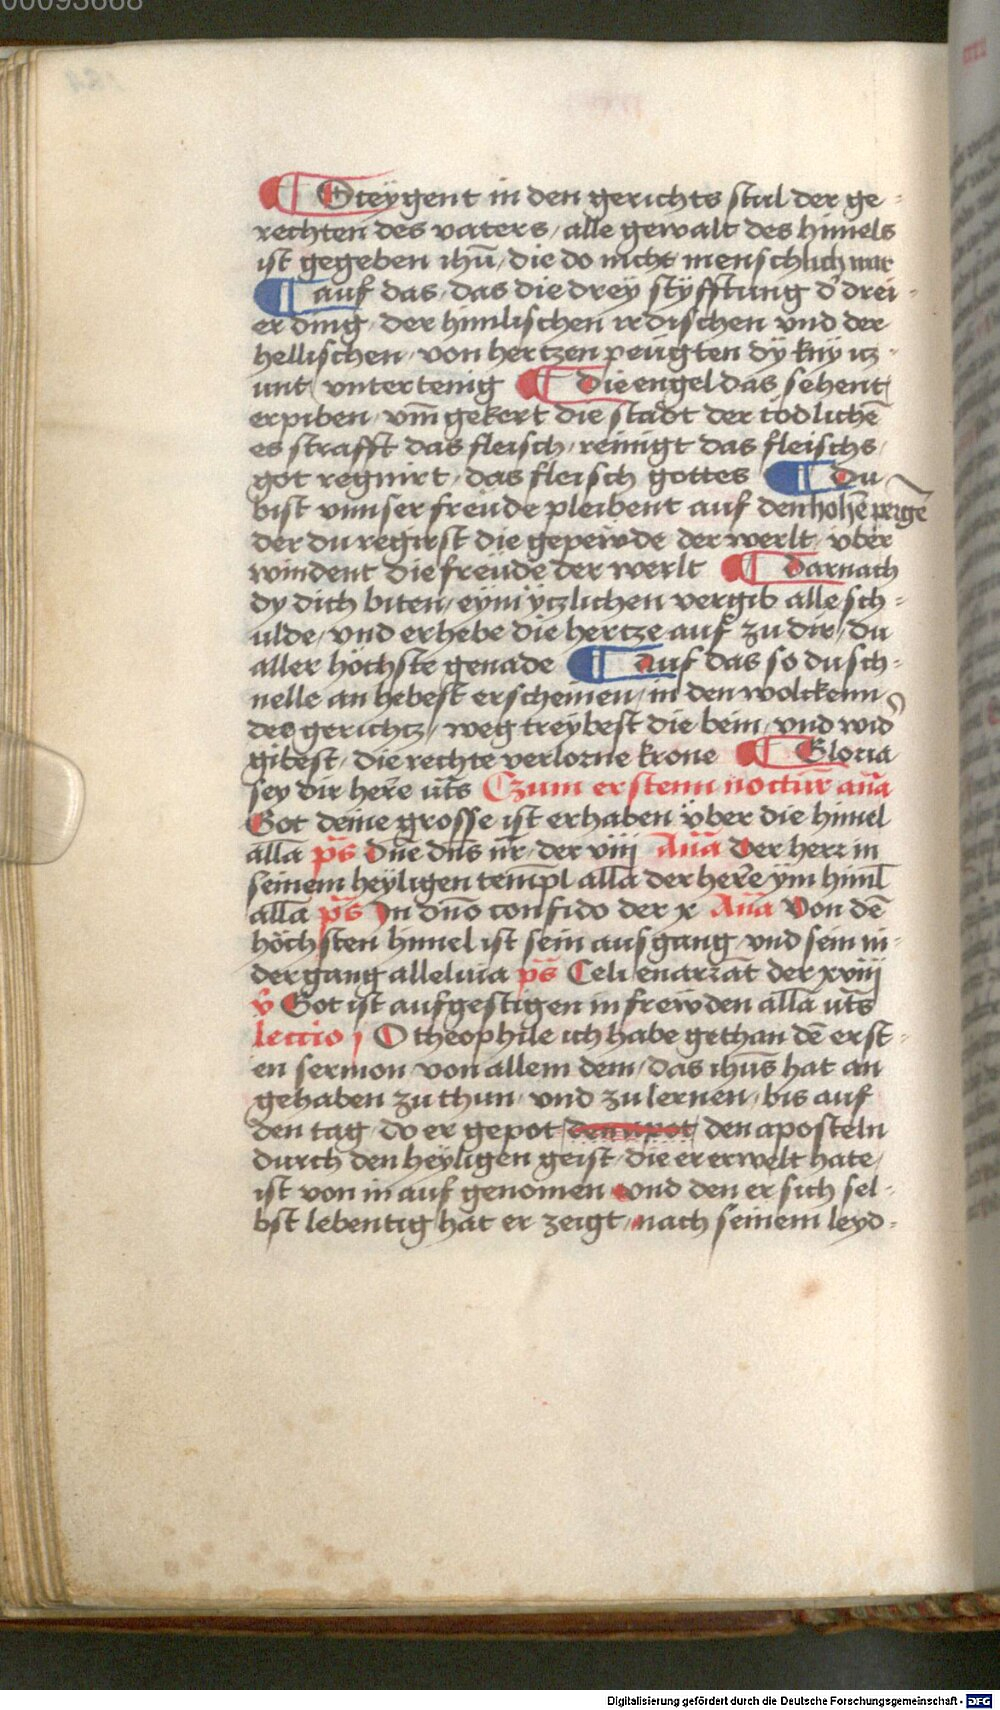 00093668
¶ Steÿgent in den gerichts stul der ge-
rechten des vaters / alle gewalt des himels
ist gegeben ihū / die do nicht menschlich war
¶ auf das / das die dreÿ stÿfftung d' drei-
er ding / der himlischen irdischen vnd der
hellischen / von hertzen peügten dÿ knÿ icz-
unt vntertenig ¶ Die engel das sehent
erpiben / vm̄ gekert die stadt der tödlichē
es strafft das fleisch / reinigt das fleischs /
got regnirt / das fleisch gottes ¶ Du
bist vnnser freüde pleibent auf den hohē pergē
der du regirst die gepewde der werlt / vber
windent die freüde der werlt ¶ Darnach
dy dich biten / eÿm ÿczlichen vergib alle sch-
ulde / vnd erhebe die hertze auf zu dir / du
aller höchste genade ¶ Auf das so du sch-
nelle an hebest erscheinen / in den wolckenn
des gerichtz / weg treÿbest die bein / vnd wid'
gibest / die rechte verlorne krone ¶ Gloria
sey dir here ut̄s Czum erstenn noctur̄ an̄a
Got deine grosse ist erhaben v̈ber die himel
all̄a ps̄ Dn̄e dn̄s nr̄ / der viii An̄a Der herr in
seinem heÿligen templ all̄a der here ÿm himl̄
all̄a ps̄ In dn̄o confido der x An̄a Von dē
höchsten himel ist sein ausgang / vnd sein ni-
dergang alleluia ps̄ Celi enarrāt der xviii
v̄ Got ist aufgestigen in frewden all̄a ut̄s
lectio j O theophile ich habe gethan dē erst-
en sermon von allem dem / das ihūs hat an
gehaben zu thun / vnd zu lernen / bis auf
den tag / do er gepot den apot den aposteln
durch den heÿligen geist / die er erwelt hate /
ist von in auf genomen vnd den er sich sel-
bst lebentig hat er zeigt / nach seinem leyd-
Digitalisierung gefördert durch die Deutsche Forschungsgemeinschaft - DFG